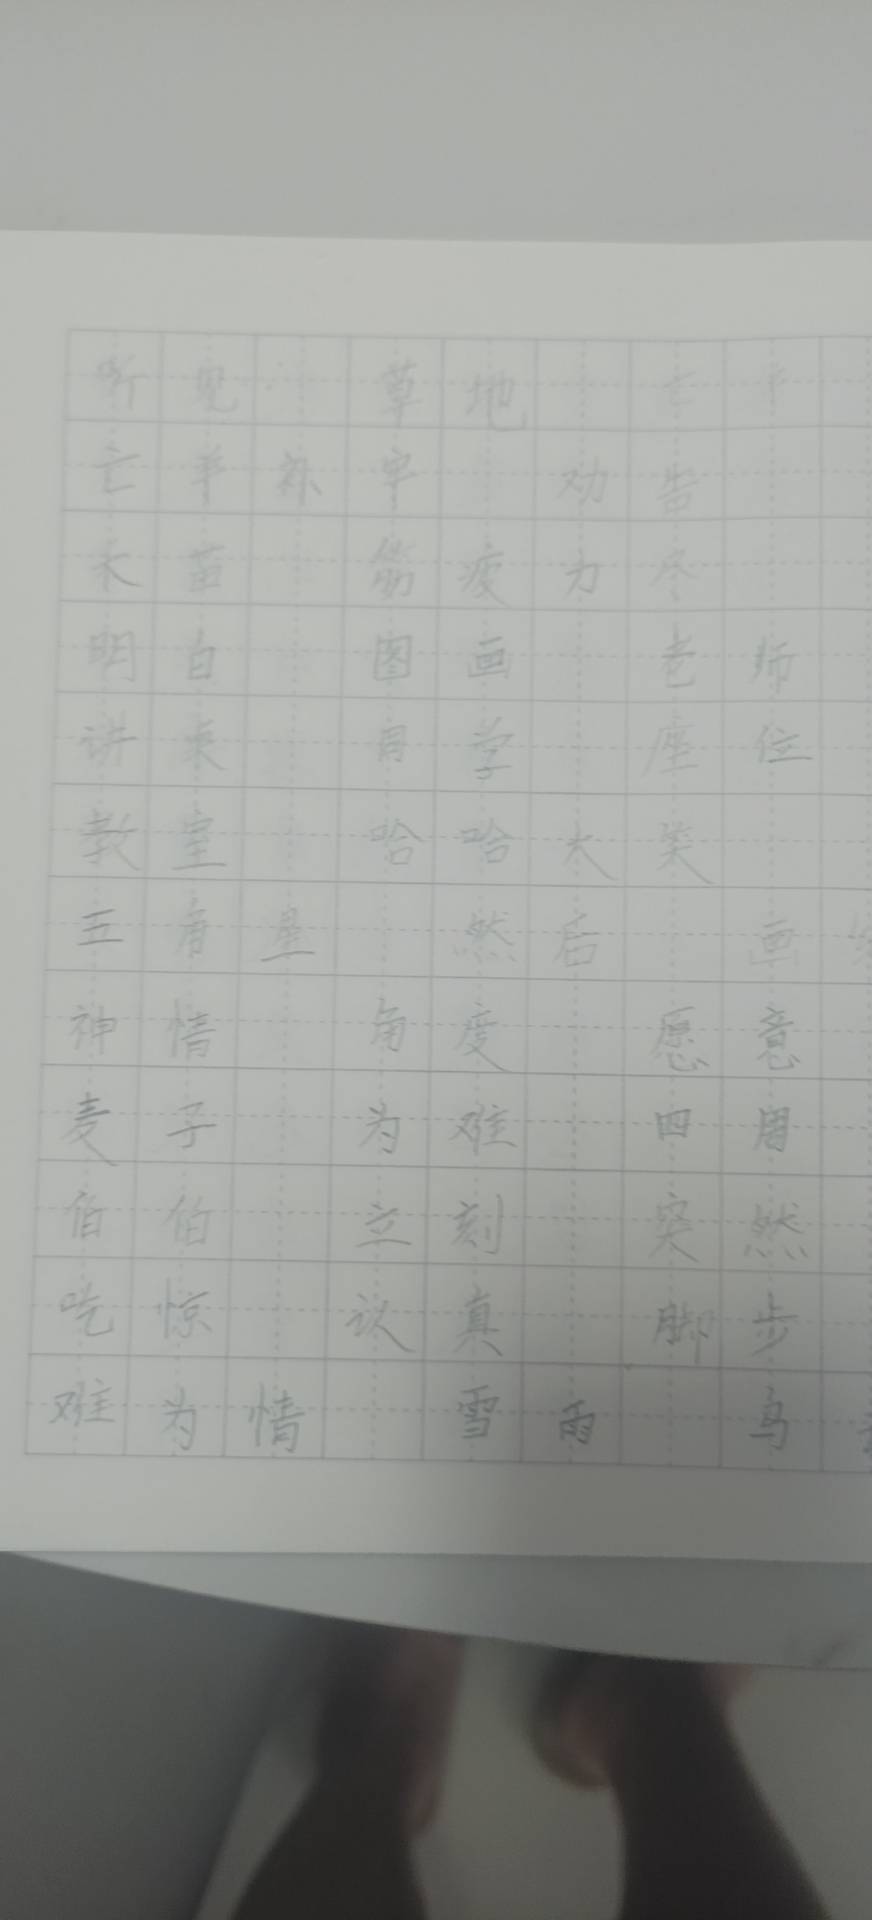 听见 草地
亡羊补牢 劝告
禾苗 筋疲力尽
明白 图画 老师
讲桌 同学 座位
教室 哈哈大笑
五角星 然后 画
神情 角度 愿意
麦子 为难 四周
伯伯 立刻 突然
吃惊 认真 脚步
难为情 雪雨 乌